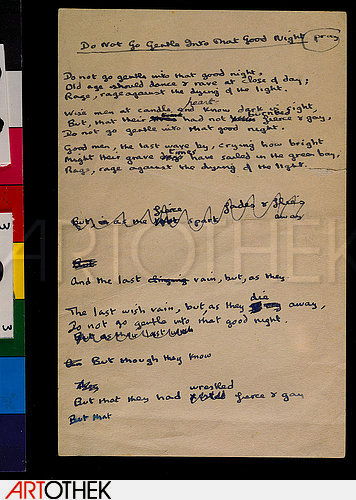 Do Not Go Gentle Into That Good Night
Do not go gentle into that good night,
Old age should dance & rave at close of day;
Rage, rage against the dying of the light.
heart
Wise men at candle end know dark is right,
wrenched
But, that their had not fierce & gay,
Do not go gentle into that good night.
Good men, the last wave by, crying how bright
times
Might their grave have sailed in the green bay,
Rage, rage against the dying of the light.
fierce fades &
But at the apart away
But
And the last clinging vain, but, as they
die
The last wish vain, but, as they away,
Do not go gentle into that good night.
But as their last wish
But though they know
wrestled
But that they had fierce & gay
But that
ARTOTHEK
ARTOTHEK